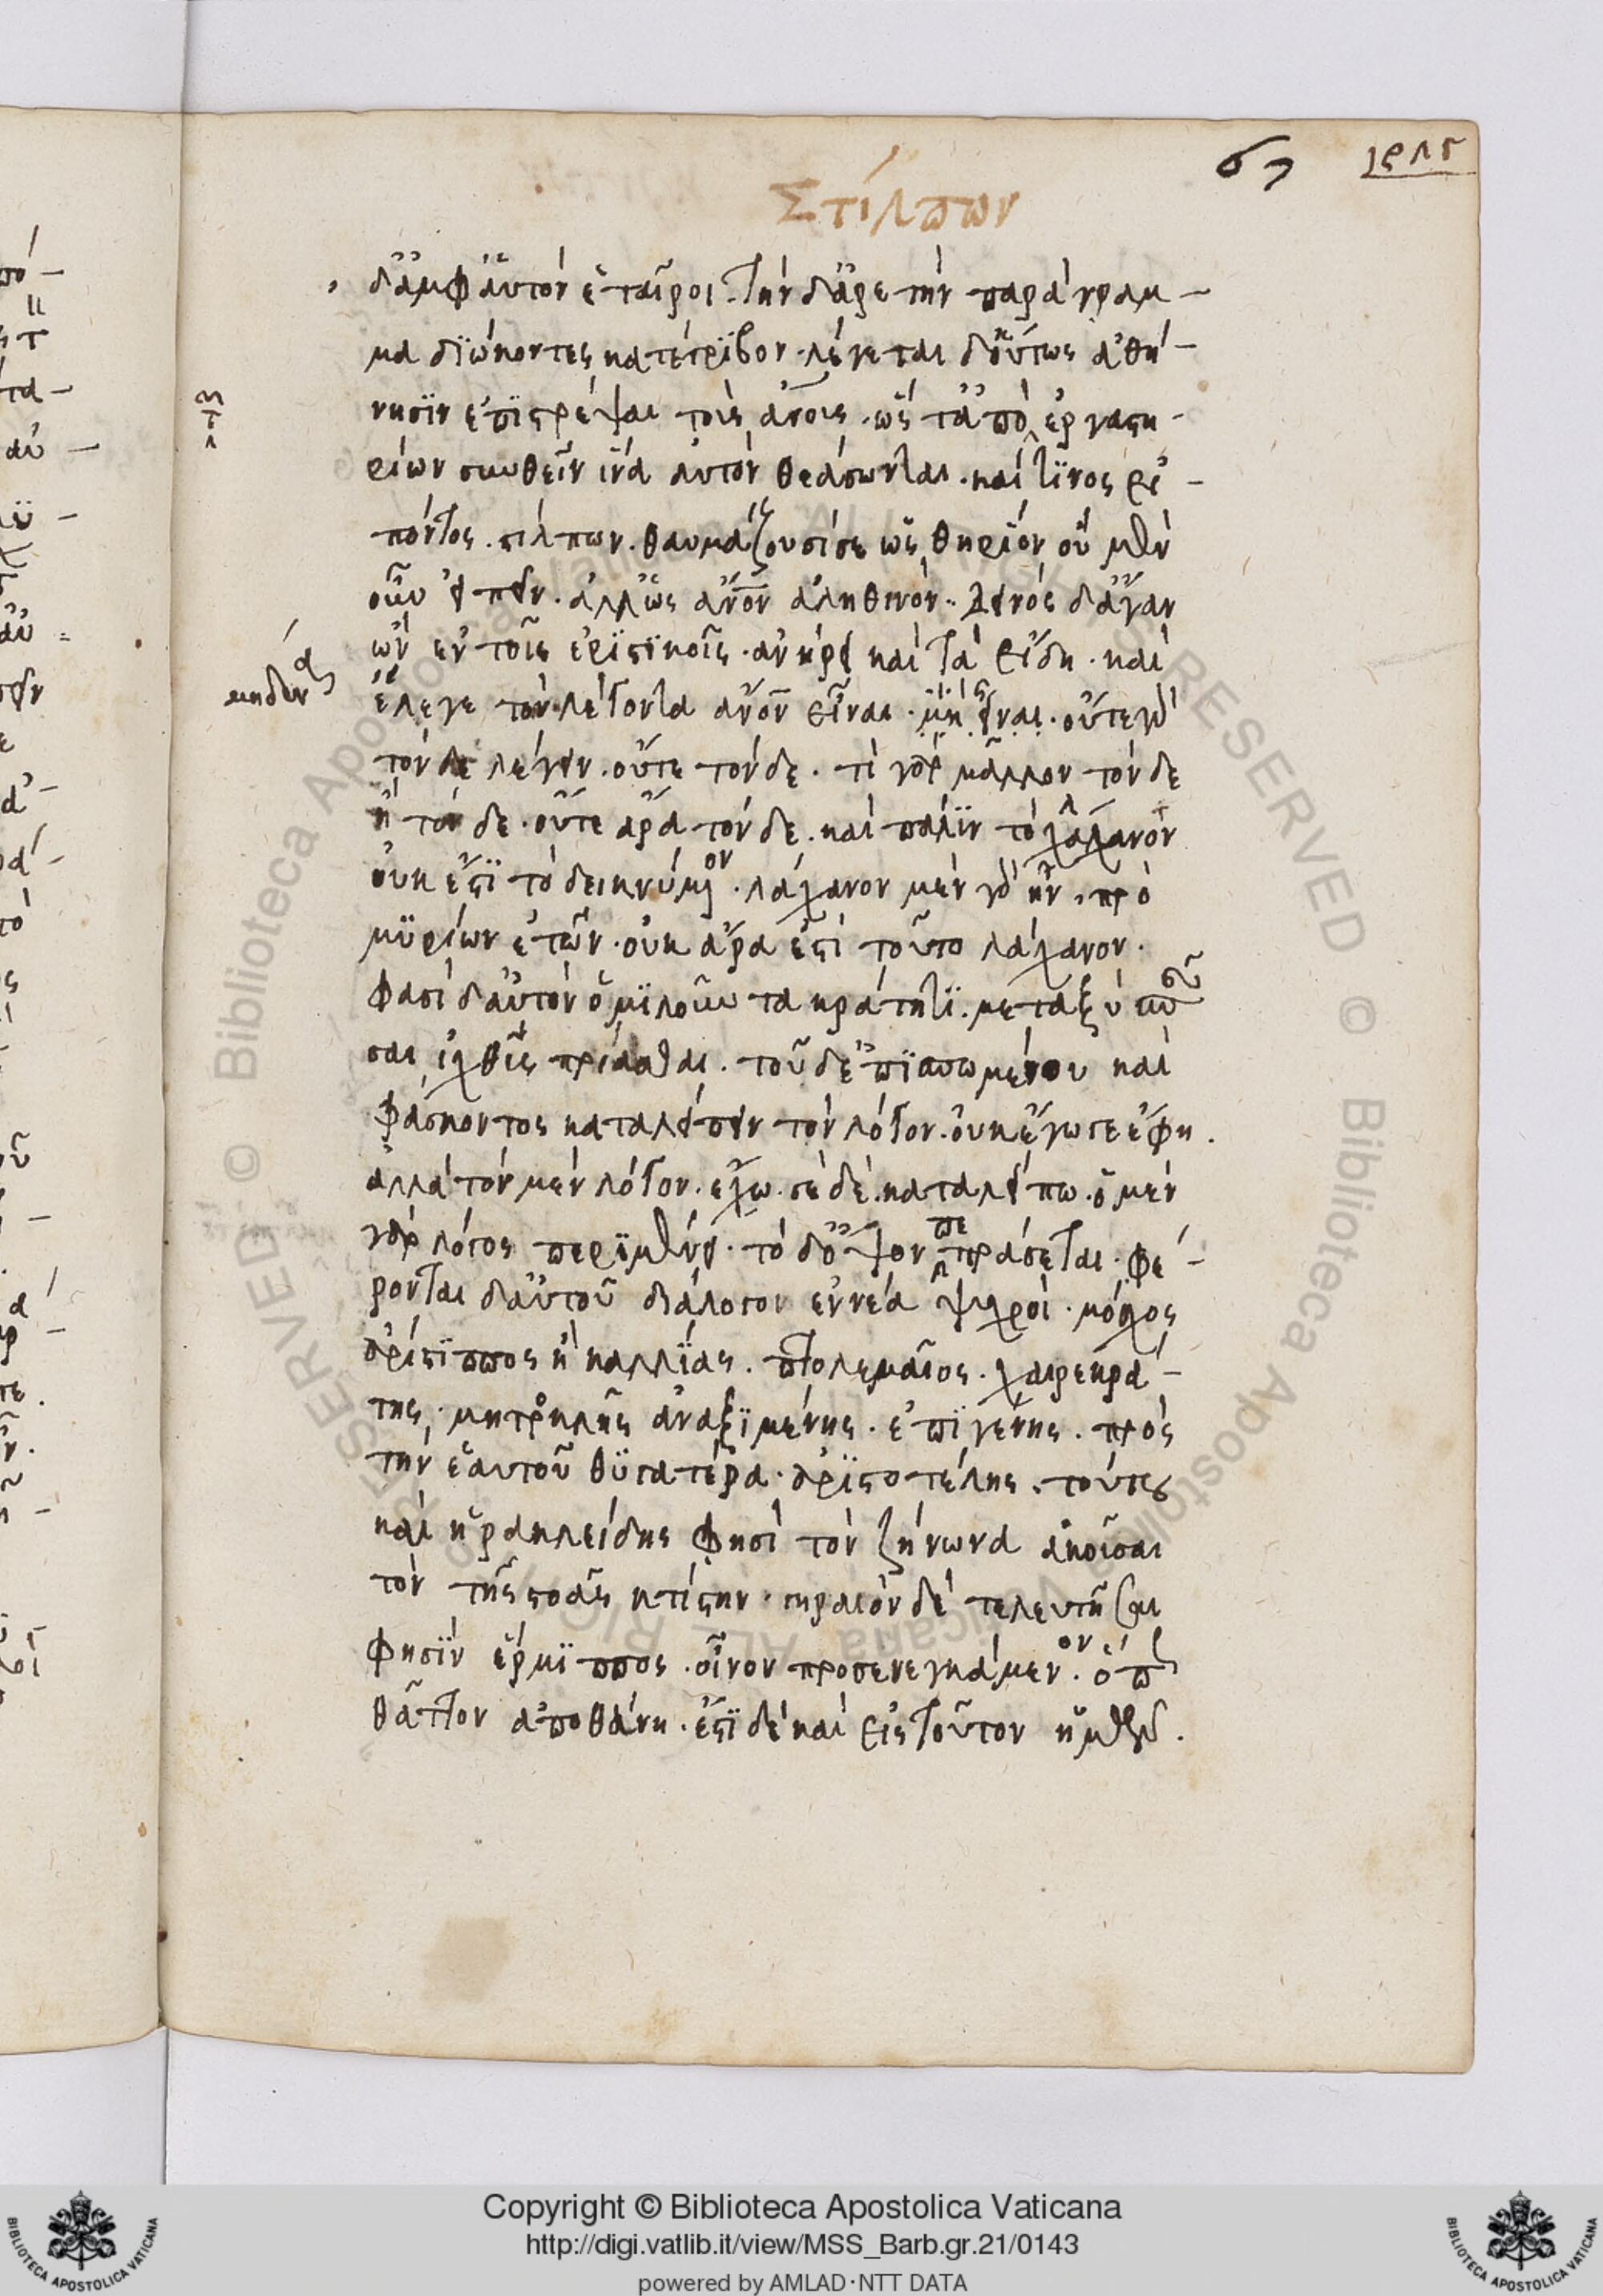 Στίλπων
δ' ἀμφ' αὐτὸν ἑταῖροι. τὴν δ' ἀρετὴν παρὰ γραμ-
μα διώκοντες κατέτριβον. λέγεται δ' οὕτως ἀθή-
νησιν ἐπιστρέψαι τοὺς ἀνους. ὡς τ' ἀπὸ ἐργαστη-
ρίων συνθεῖν ἵνα αὐτὸν θεάσωνται. καί τινος εἰ-
πόντος. στίλπων. θαυμάζουσί σε ὡς θηρίον οὐ μὲν
οὖν εἰπεῖν. ἀλλ' ὡς ἀνον ἀληθινόν. δεινὸς δ' ἄγαν
ὢν ἐν τοῖς ἐριστικοῖς. ἀνήρει καὶ τὰ εἴδη. καὶ
μηδένα
ἔλεγε τὸν λέγοντα ἀνον εἶναι. μὴ εἶναι. οὔτε γὰρ
τόνδε λέγειν. οὔτε τόνδε. τί γὰρ μᾶλλον τόνδε
ἢ τόνδε. οὔτε ἄρα τόνδε. καὶ πάλιν τὸ λάχανον
οὐκ ἔστι τὸ δεικνύμενον. λάχανον μὲν γὰρ ἦν πρὸ
μυρίων ἐτῶν. οὐκ ἄρα ἐστὶ τοῦτο λάχανον.
φασὶ δ' αὐτὸν ὁμιλοῦντα κράτητι. μεταξὺ σπεῦ
σαι ἰχθῦς πρίασθαι. τοῦ δ' ἐπισπωμένου καὶ
φάσκοντος καταλείπειν τὸν λόγον. οὐκ ἔγωγε ἔφη.
ἀλλὰ τὸν μὲν λόγον. ἔχω. σὲ δὲ καταλείπω. ὁ μὲν
γὰρ λόγος περιμένει. τὸ δ' ὄψον πεπράσεται. φέ-
ρονται δ' αὐτοῦ διάλογοι ἐννέα ψυχροί. μόσχος
ἀρίστιππος ἢ καλλίας. πτολεμαῖος. χαιρεκρά-
της. μητροκλῆς ἀναξιμένης. ἐπιγένης. πρὸς
τὴν ἑαυτοῦ θυγατέρα. ἀριστοτέλης. τούτου
καὶ ἡρακλείδης φησὶ τὸν ζήνωνα ἀκοῦσαι
τὸν τῆς στοᾶς κτίστην. γηραιὸν δὲ τελευτῆσαι
φησὶν ἕρμιππος. οἶνον προσενεγκάμενον. ὅπως
θᾶττον ἀποθάνη. ἔστι δὲ καὶ εἰς τοῦτον ἡμῶν.
Copyright © Biblioteca Apostolica Vaticana
http://digi.vatlib.it/view/MSS_Barb.gr.21/0143
powered by AMLAD·NTT DATA